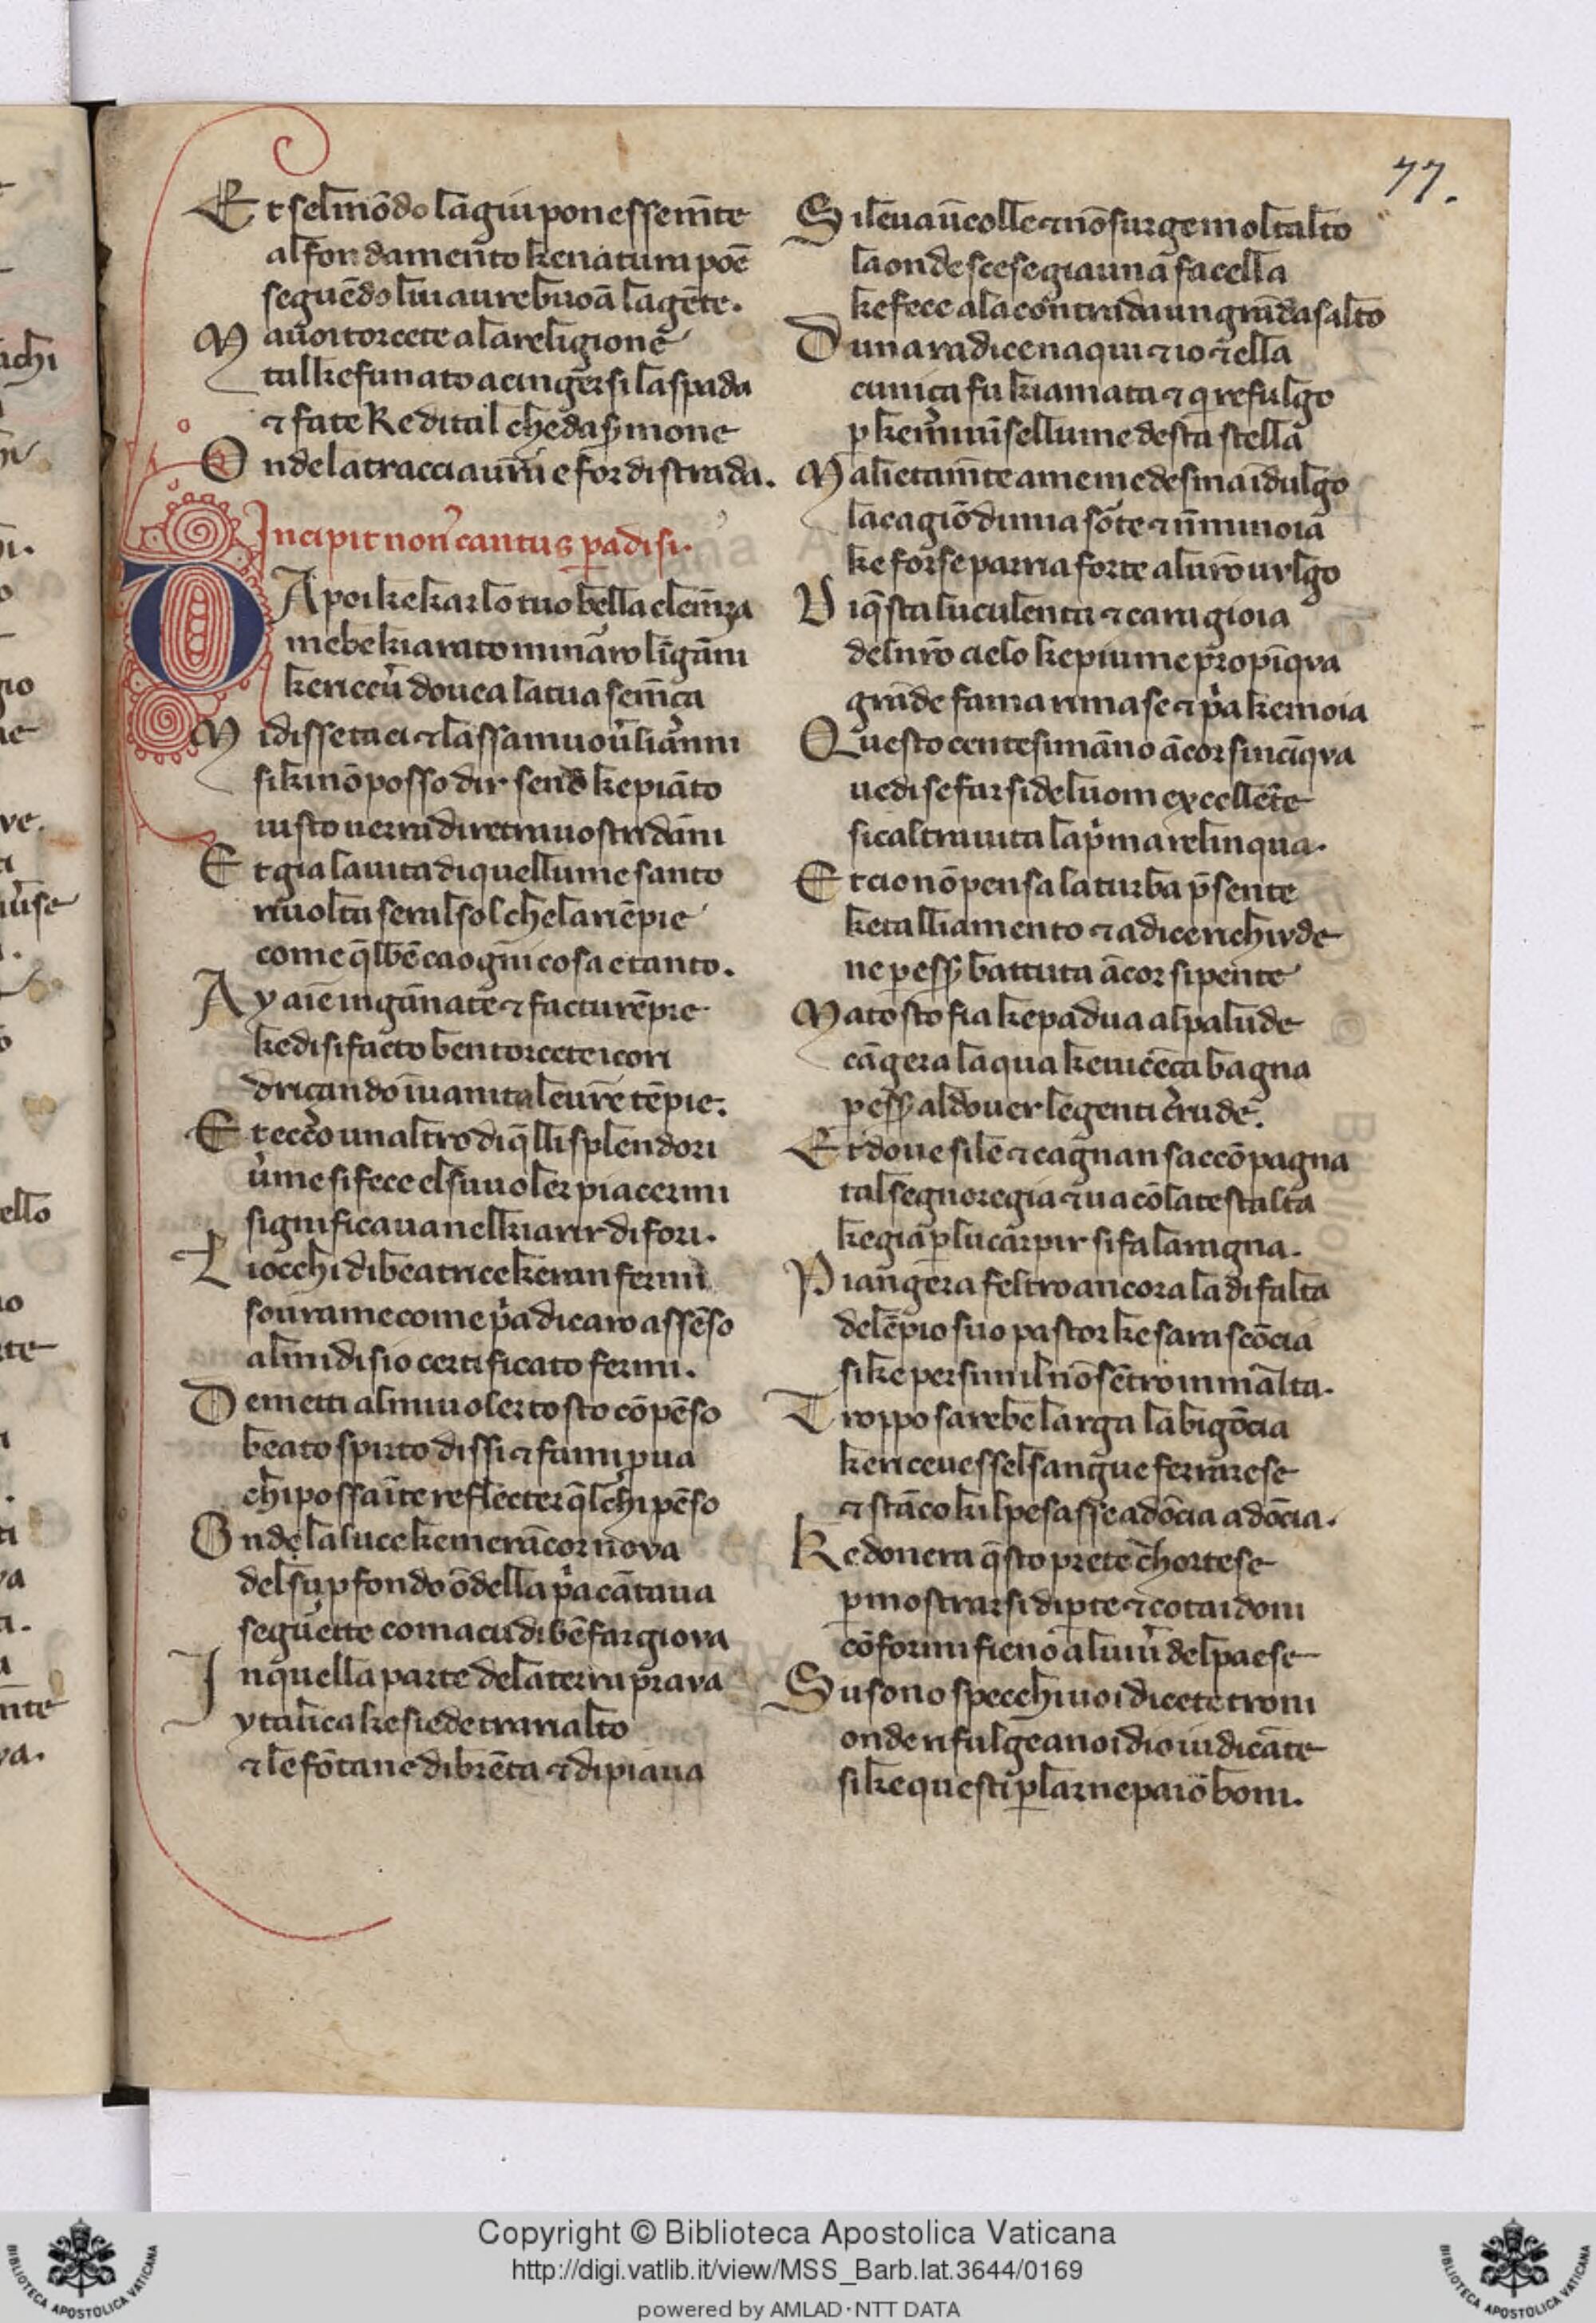 77.
Et sel mōdo lagiu ponesse m̄te
al fondamento ke natura poē
seguēdo lui aurebuoā lagēte.
Ma uoi torcete ala religione
tal ke fu nato a cingersi la spada
⁊ fate Re di tal che da s̄mone
Onde la traccia aur̄a e for di strada.
Incipit non̾ cantus padisi.
DA poi ke karlo tuo bella clem̄za
mebe kiarato minarro linganni
ke riceu̾ douea la tua sem̄ta
Mi disse taci ⁊ lassa muou̾ lianni
si kinō posso dir senō ke piāto
iusto uerra diretra uostri dāni
Et gia la uita di quel lume santo
riuolta sera al sol che la riēpie
come q̄l bē ca ogni cosa e tanto.
Ay aīe ingānate ⁊ facture ēpie
ke di si facto ben torcete i cori
driçando i uanita le ur̄e tēpie.
Et ecc̾o un altro di q̄lli splendori
u̾me si fece el suuoler piacermi
significaua nel kiarir di fori.
Li occhi di beatrice keran fermi
souramecome p̾a di caro assēso
al mi disio certificato fermi.
De metti al miuoler tosto cōpēso
beato spirto dissi ⁊ fami pua
chi possa ī te reflecter q̄l chi pēso
Onde la luce ke mera ācor nova
del su pfondo ōdella p̾a cātaua
seguette coma cu di bē far giova
In quella parte dela terra prava
ytalica ke siede tra rialto
⁊ le fōtane di brēta ⁊ di piaua
Si leua ū colle ⁊ nō surge molto alto
la onde scese gia una facella
ke fece ala contrada un grāde asalto
Duna radice naqui ⁊ io ⁊ ella
cuniça fu kiamata ⁊ q refulgo
p ke mi uīse l lume desta stella
Ma lietam̄te a me medesma idulgo
la cagiō di mia sorte ⁊ nō mi noia
ke forse parria forte al uro uulgo
Di q̄sta luculenta ⁊ cara gioia
del nr̄o cielo ke piu me propīqva
grāde fama rimase ⁊ p̾a ke moia
Questo centesimāno ācor sincīqva
uedi se far si de luom excellēte
sicaltra uita la p̾ma relinqua.
Et cio nō pensa la turba p̄sente
ke talliamento ⁊ adice richiude
ne p ess̾ battuta ācor si pente
Ma tosto fia ke padua al palude
cāgera laqua ke uicēça bagna
p ess̾ al douer le genti crude.
Et doue sile ⁊ cagnan saccōpagna
tal segnoregia ⁊ ua cō la testalta
ke gia p lu carpir si fa la ragna.
Piangera feltro ancora la difalta
delēpio suo pastor ke sara scōcia
si ke per simil nō sētro in malta.
Troppo sarebe larga la bigōcia
ke riceuesse l sangue ferrarese
⁊ stāco kil pesasse a dōcia a dōcia.
Ke donera q̄sto prete chortese
p mostrarsi di pte ⁊ cotai doni
cōformi fieno al uiu̾ del paese
Su sono specchi uoi dicete troni
onde rifulge a noi dio iudicāte
si ke questi plar ne paiō boni.
Copyright © Biblioteca Apostolica Vaticana
http://digi.vatlib.it/view/MSS_Barb.lat.3644/0169
powered by AMLAD·NTT DATA
BIBLIOTECA APOSTOLICA VATICANA
BIBLIOTECA APOSTOLICA VATICANA